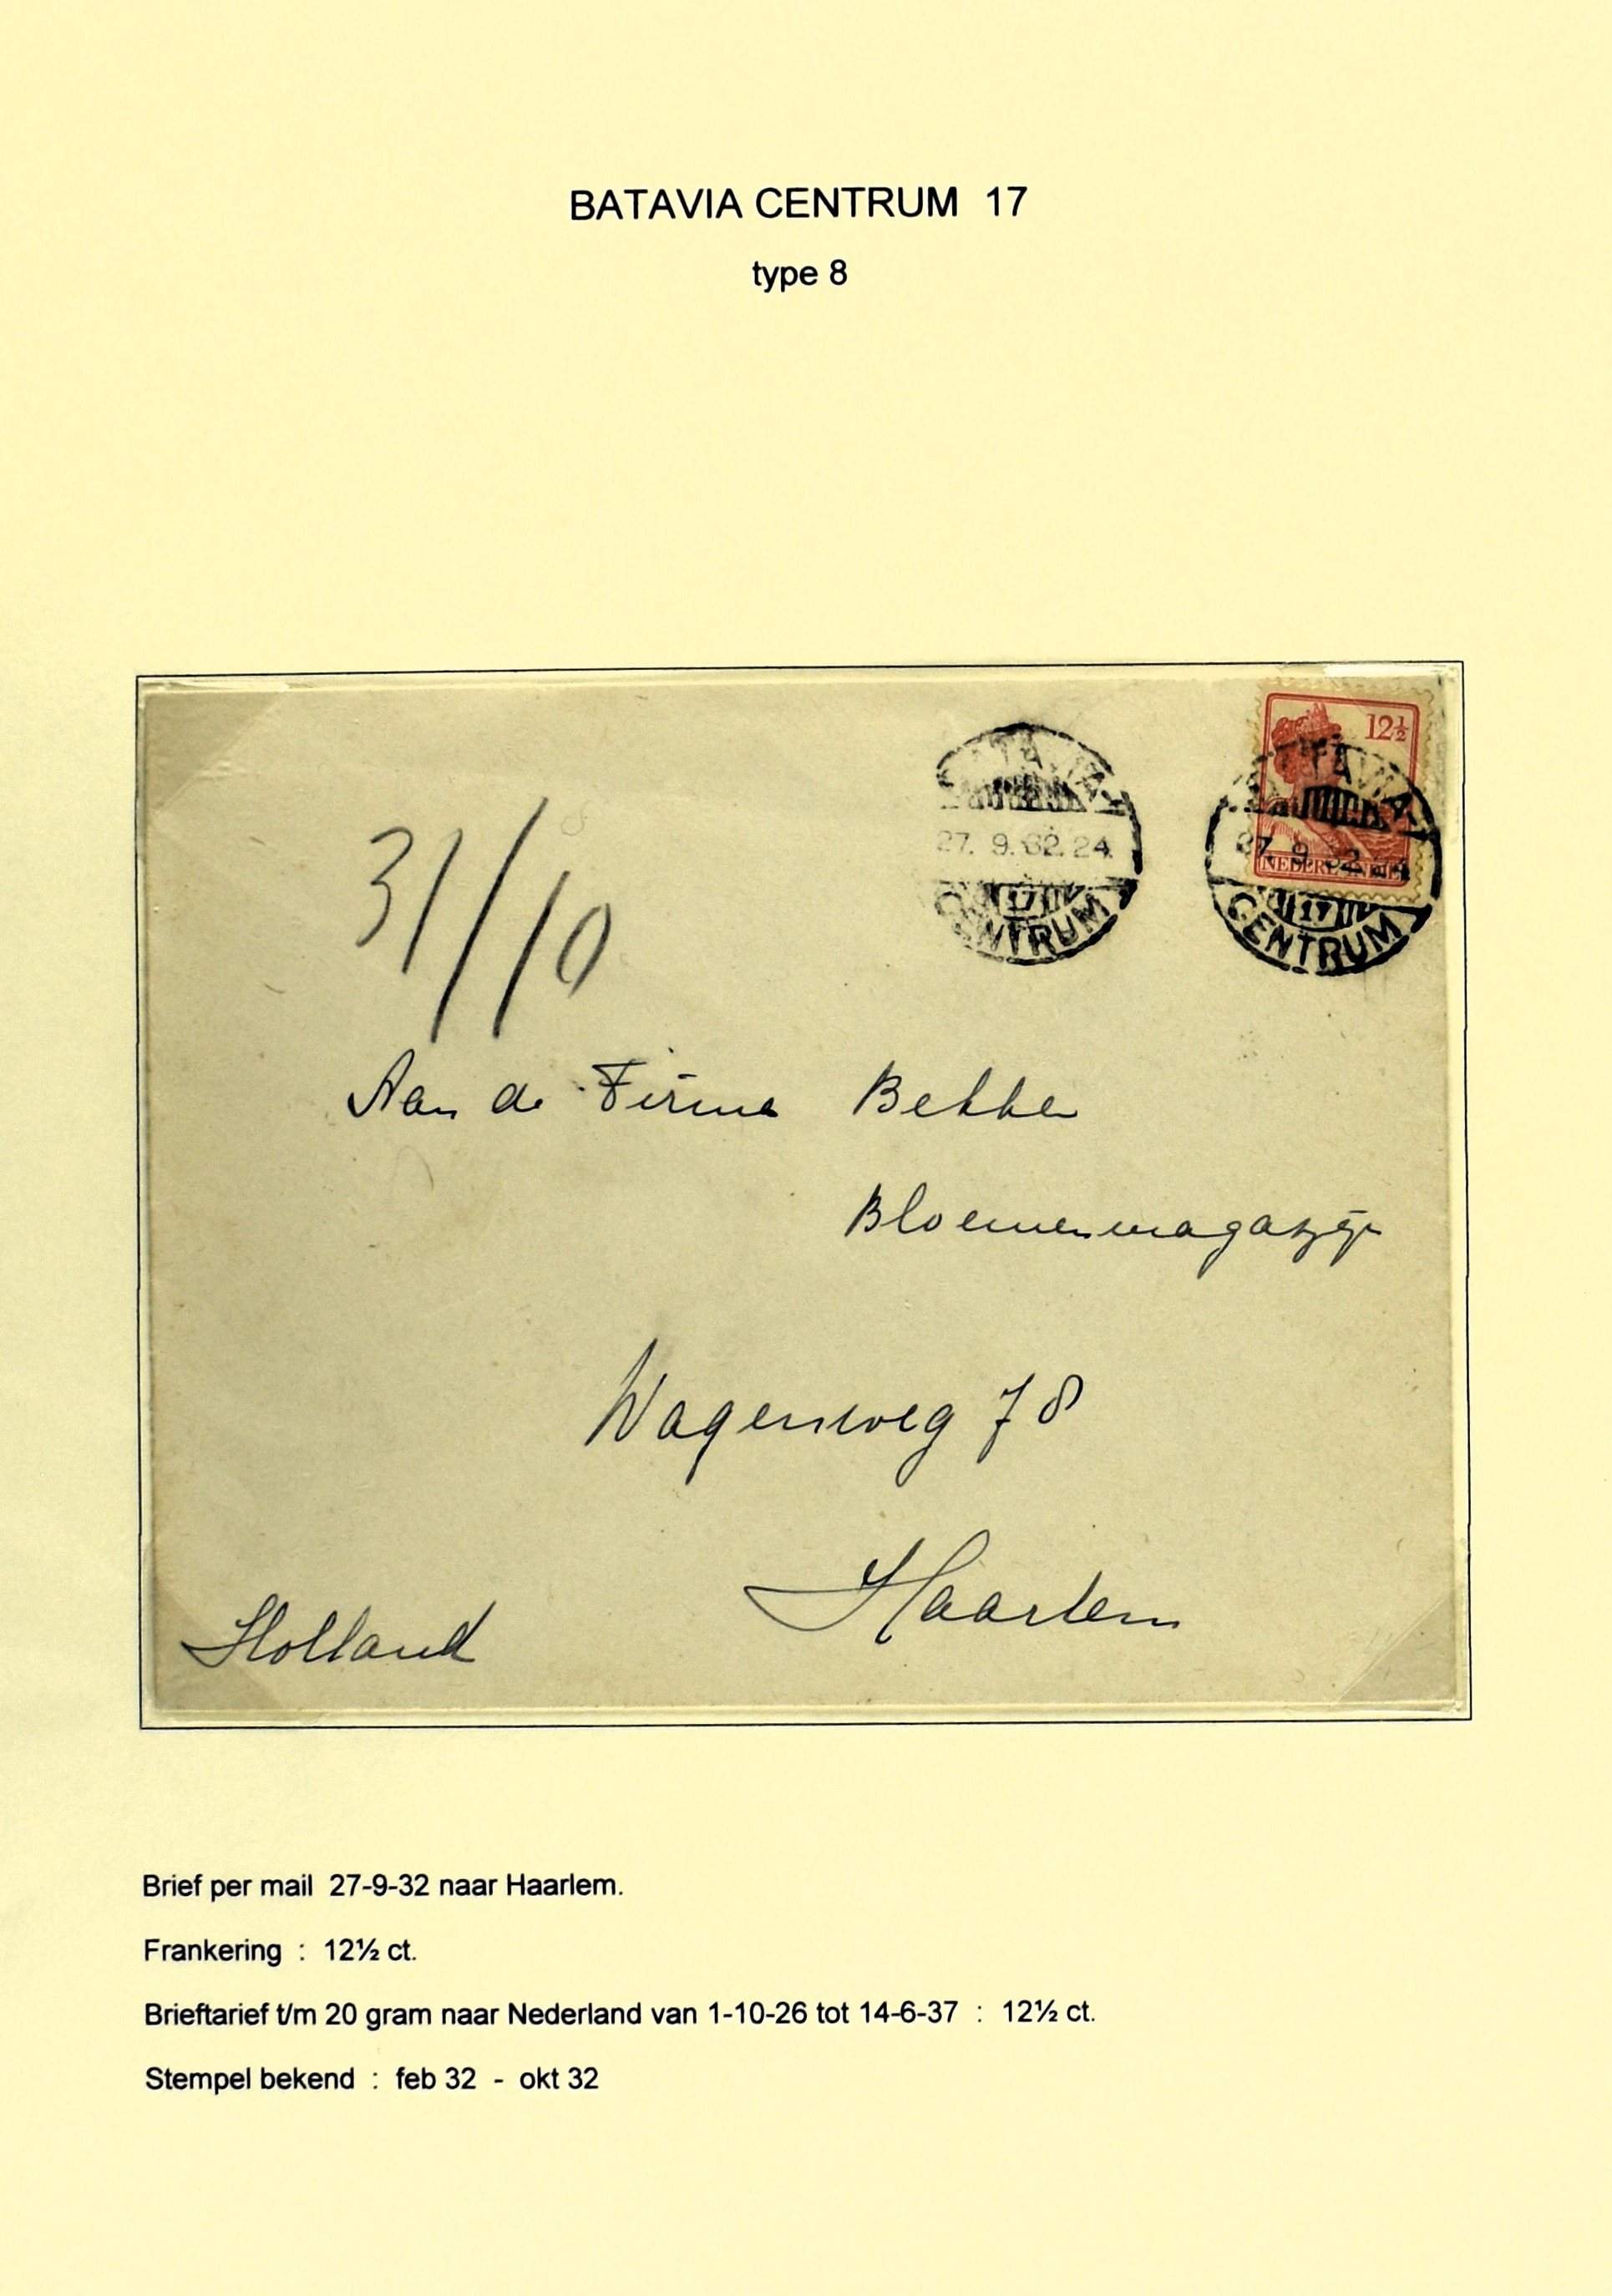 BATAVIA CENTRUM 17
type 8
12½
NEDERL. INDIË
BATAVIA-
27. 9.32.24
17
CENTRUM
BATAVIA-
27. 9.32.24
17
CENTRUM
31/10
Aan de Firma Bekker
Bloemenmagazijn
Wagenweg 78
Haarlem
Holland
Brief per mail 27-9-32 naar Haarlem.
Frankering : 12½ ct.
Brieftarief t/m 20 gram naar Nederland van 1-10-26 tot 14-6-37 : 12½ ct.
Stempel bekend : feb 32 - okt 32